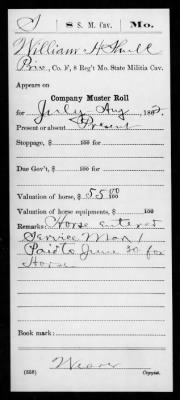 S | 8 S. M. Cav. | Mo.
William H
Priv., Co. F, 8 Reg't Mo. State Militia Cav.
Appears on
Company Muster Roll
for July Aug, 1862.
Present or absent Present
Stoppage, $ 100 for
Due Gov't, $ 100 for
Valuation of horse, $ 55 00/100
Valuation of horse equipments, $ 100
Remarks: Horse entered
Service Mar 1
Paid to June 30 for
Horse
Book mark:
Weaver
(358) Copyist.